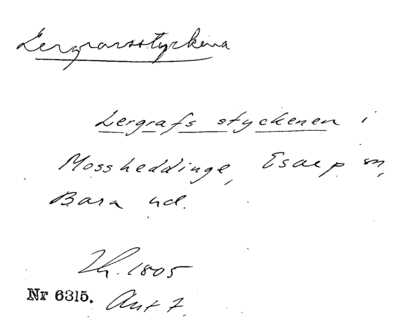 Lergravsstyckena
Lergrafs styckenen i
Mossheddinge, Esarp sn,
Bara hd.
Lh. 1805
Nr 6315. Akt 7.